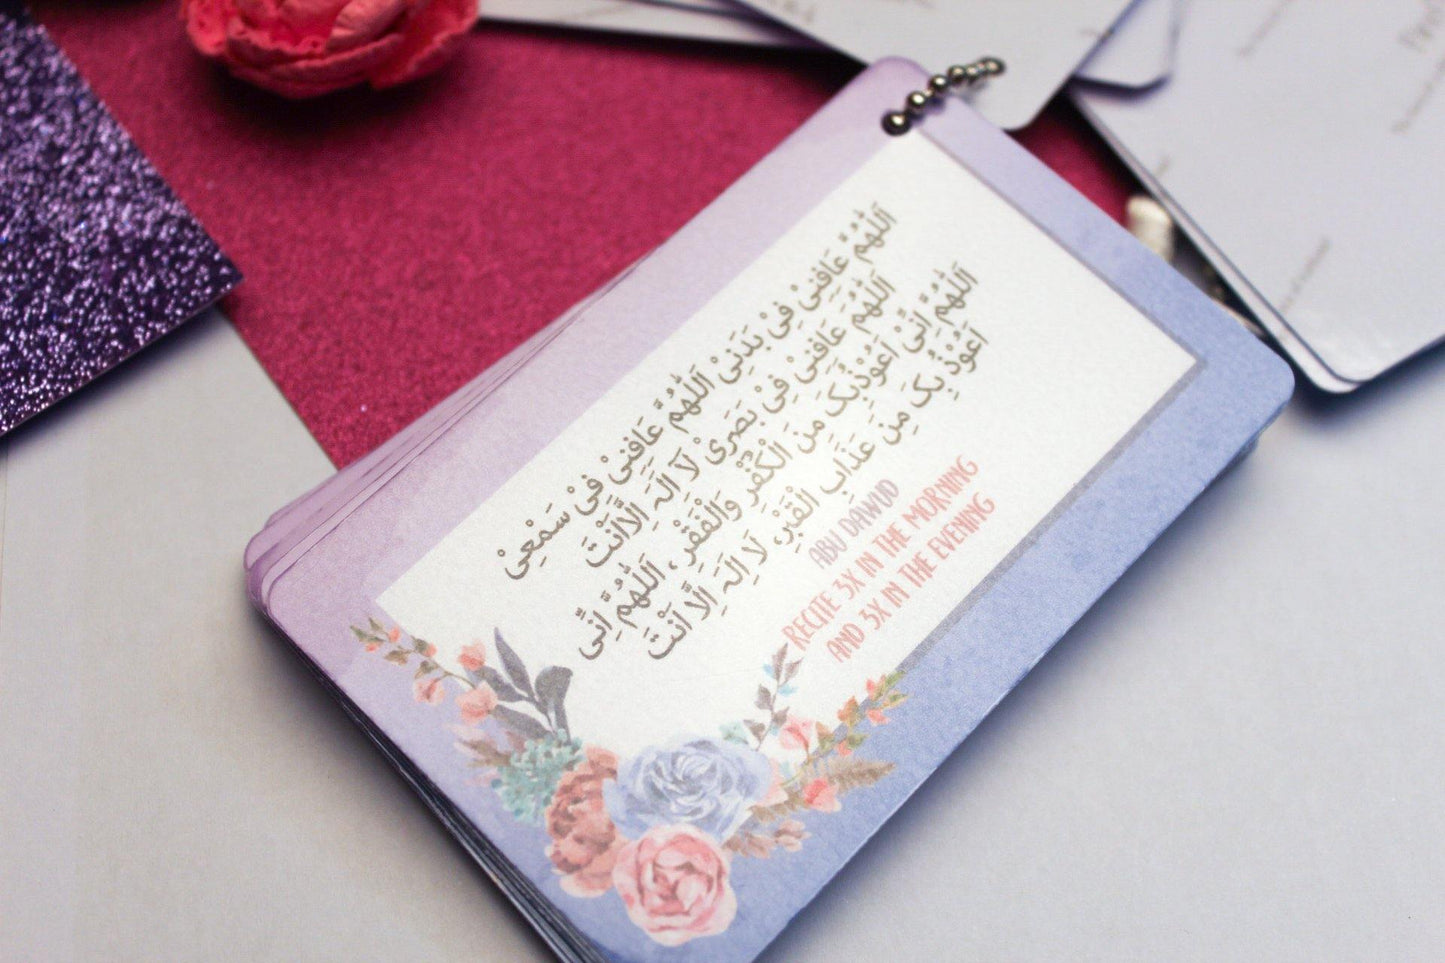 اَللّٰهُمَّ عَافِنِیْ فِیْ بَدَنِیْ اَللّٰهُمَّ عَافِنِیْ فِیْ سَمْعِیْ
اَللّٰهُمَّ عَافِنِیْ فِیْ بَصَرِیْ لَآ اِلٰهَ اِلَّا اَنْتَ
اَللّٰهُمَّ اِنِّیْ اَعُوْذُبِکَ مِنَ الْکُفْرِ وَالْفَقْرِ، اَللّٰهُمَّ اِنِّی
اَعُوْذُ بِکَ مِنَ عَذَابِ الْقَبْرِ، لَا اِلٰهَ اِلَّا اَنْتَ
ABU DAWUD
RECITE 3X IN THE MORNING
AND 3X IN THE EVENING